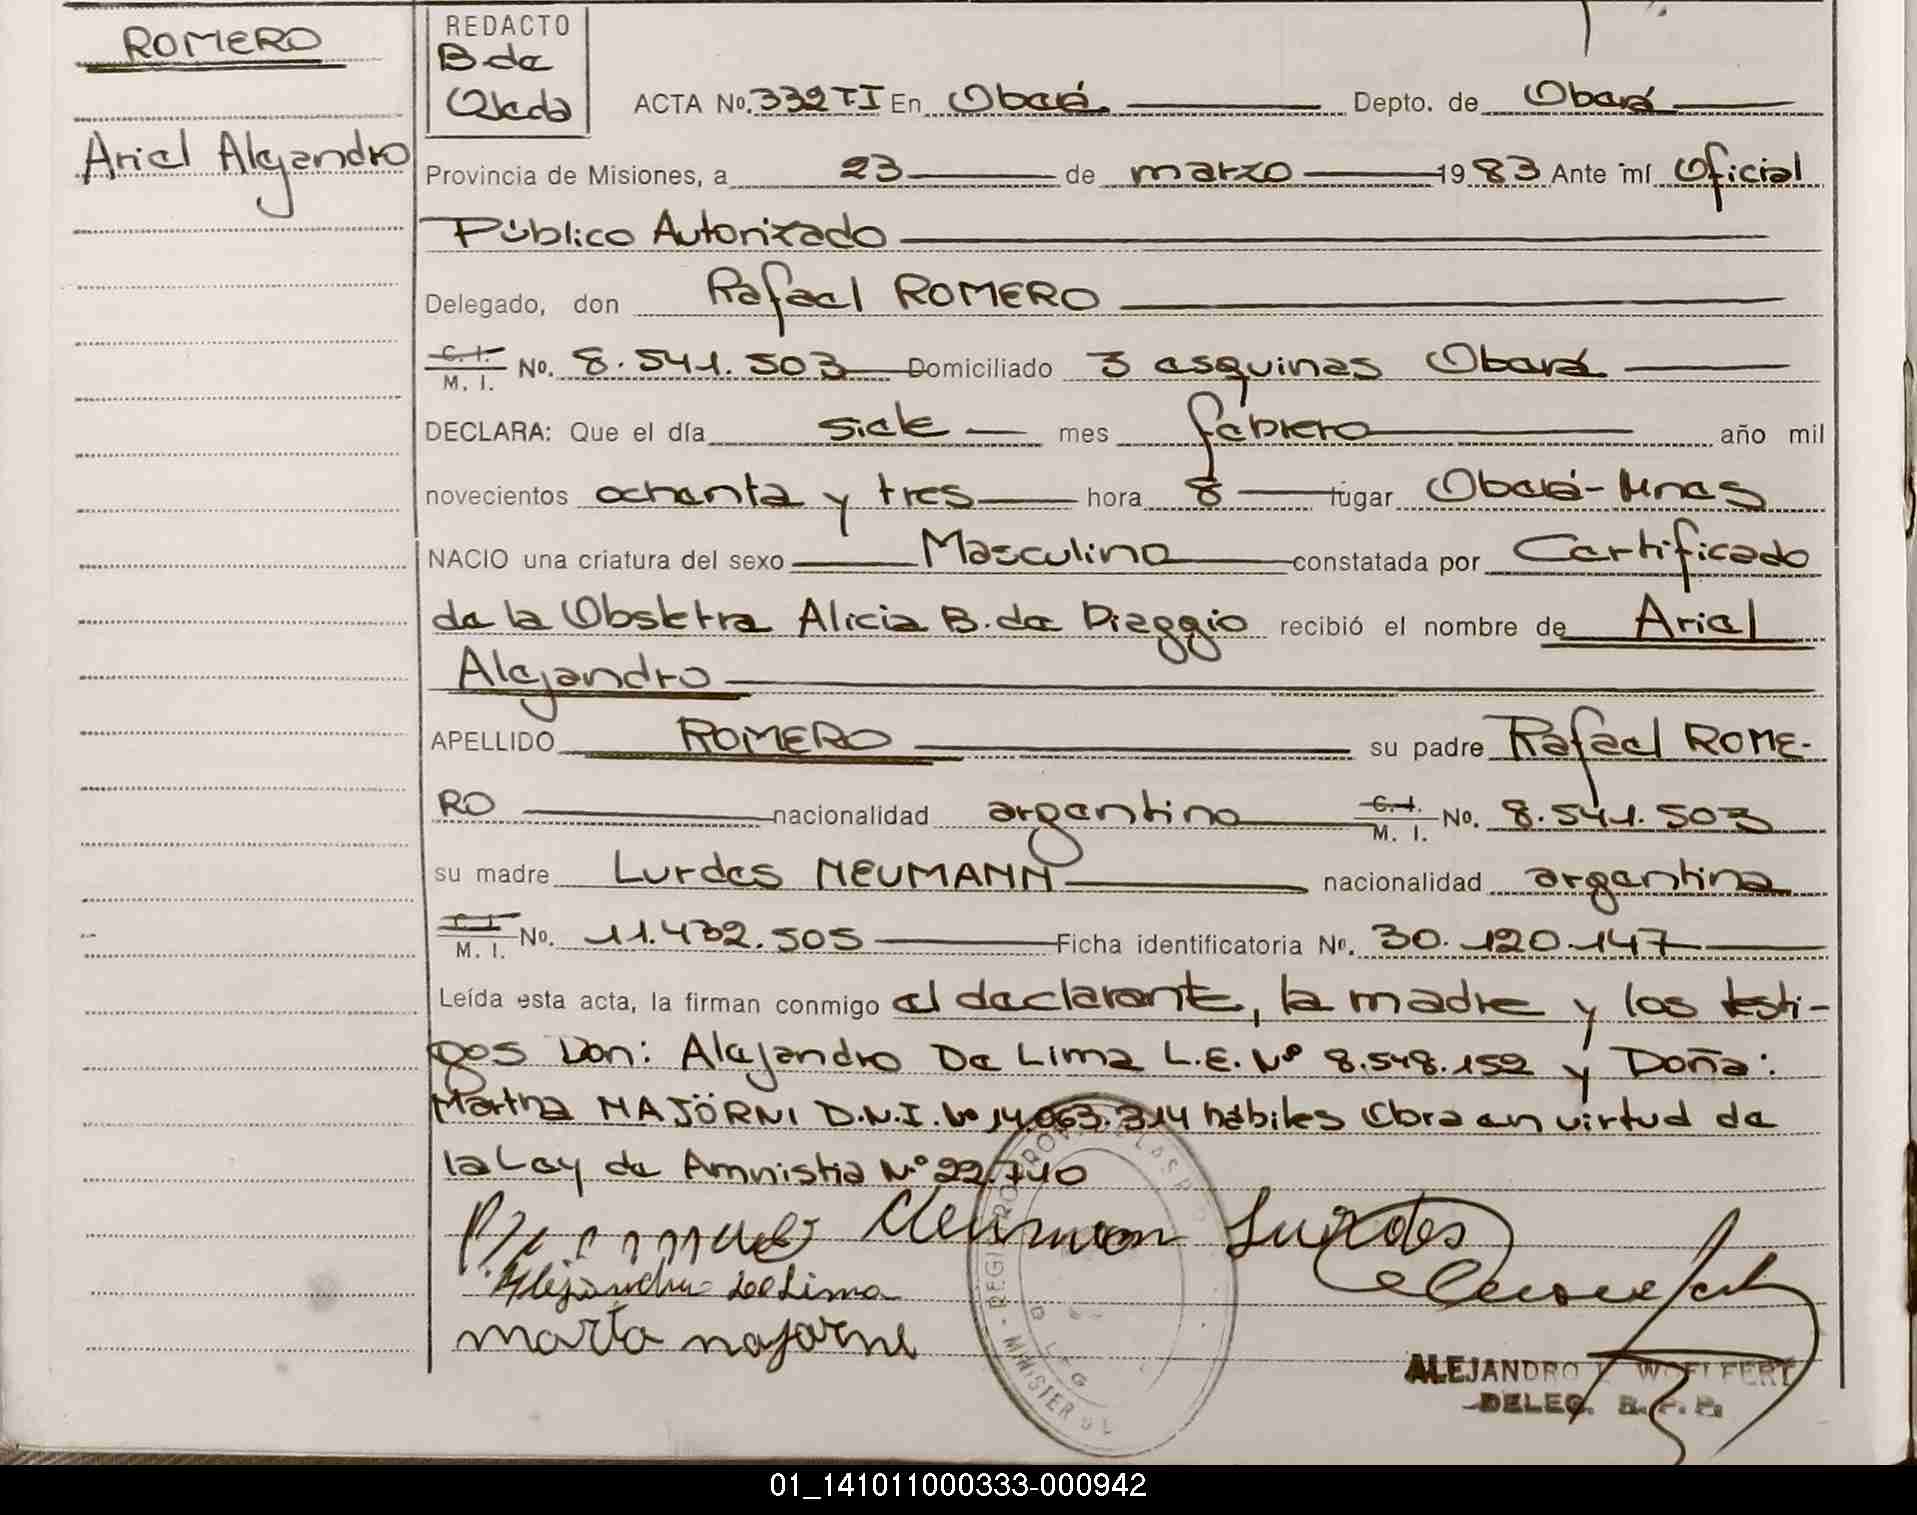 ROMERO
Ariel Alejandro
REDACTO
B. de
Oleda
ACTA No. 332 T.I En Oberá Depto. de Oberá
Provincia de Misiones, a 23 de marzo 1983 Ante mí Oficial
Público Autorizado
Delegado, don Rafael ROMERO
C. I.
M. I. No. 8.541.503 Domiciliado 3 esquinas Oberá
DECLARA: Que el día siete mes febrero año mil
novecientos ochenta y tres hora 8 lugar Oberá-Mnes
NACIO una criatura del sexo Masculino constatada por Certificado
de la Obstetra Alicia B. de Diaggio recibió el nombre de Ariel
Alejandro
APELLIDO ROMERO su padre Rafael ROME-
RO nacionalidad argentino C. I.
M. I. No. 8.541.503
su madre Lurdes NEUMANN nacionalidad argentina
C. I.
M. I. No. 11.432.505 Ficha identificatoria No. 30.120.147
Leída esta acta, la firman conmigo el declarante, la madre y los testi-
gos Don: Alejandro De Lima L.E. Nº 8.548.152 y Doña:
Martha NAJÖRNI D.N.I. Nº 14.063.314 hábiles Obra en virtud de
la Ley de Amnistia Nº 22.740
Neuman Lurdes
Alejandro De Lima
marta najorni
ALEJANDRO WOELFERT
DELEG. R.P.P.
01_141011000333-000942